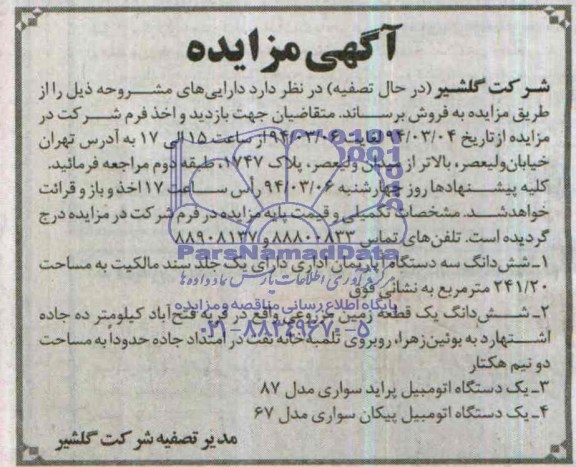 آگهی مزایده
شرکت گلشیر (در حال تصفیه) در نظر دارد دارایی‌های مشروحه ذیل را از
طریق مزایده به فروش برساند. متقاضیان جهت بازدید و اخذ فرم شرکت در
مزایده از تاریخ ۹۴/۰۳/۰۴ لغایت ۹۴/۰۳/۰۶ از ساعت ۱۵ الی ۱۷ به آدرس تهران
خیابان ولیعصر، بالاتر از میدان ولیعصر، پلاک ۱۷۴۷، طبقه دوم مراجعه فرمائید.
کلیه پیشنهادها روز چهارشنبه ۹۴/۰۳/۰۶ رأس ساعت ۱۷ اخذ و باز و قرائت
خواهد شد. مشخصات تکمیلی و قیمت پایه مزایده در فرم شرکت در مزایده درج
گردیده است. تلفن‌های تماس ۸۸۸۰۰۸۳۳ و ۸۸۹۰۸۱۴۷
ParsNamadData
۱ـ شش‌دانگ سه دستگاه آپارتمان اداری دارای یک جلد سند مالکیت به مساحت
مرکز فرآوری اطلاعات پارس نماد داده‌ها
۲۴۱/۲۰ مترمربع به نشانی فوق
پایگاه اطلاع رسانی مناقصه و مزایده
۲ـ شش‌دانگ یک قطعه زمین مزروعی واقع در قریه فتح‌آباد کیلومتر ده جاده
۰۲۱-۸۸۳۴۹۶۷۰-۵
اشتهارد به بوئین‌زهرا، روبروی تلمبه‌خانه نفت در امتداد جاده حدوداً به مساحت
دو نیم هکتار
۳ـ یک دستگاه اتومبیل پراید سواری مدل ۸۷
۴ـ یک دستگاه اتومبیل پیکان سواری مدل ۶۷
مدیر تصفیه شرکت گلشیر